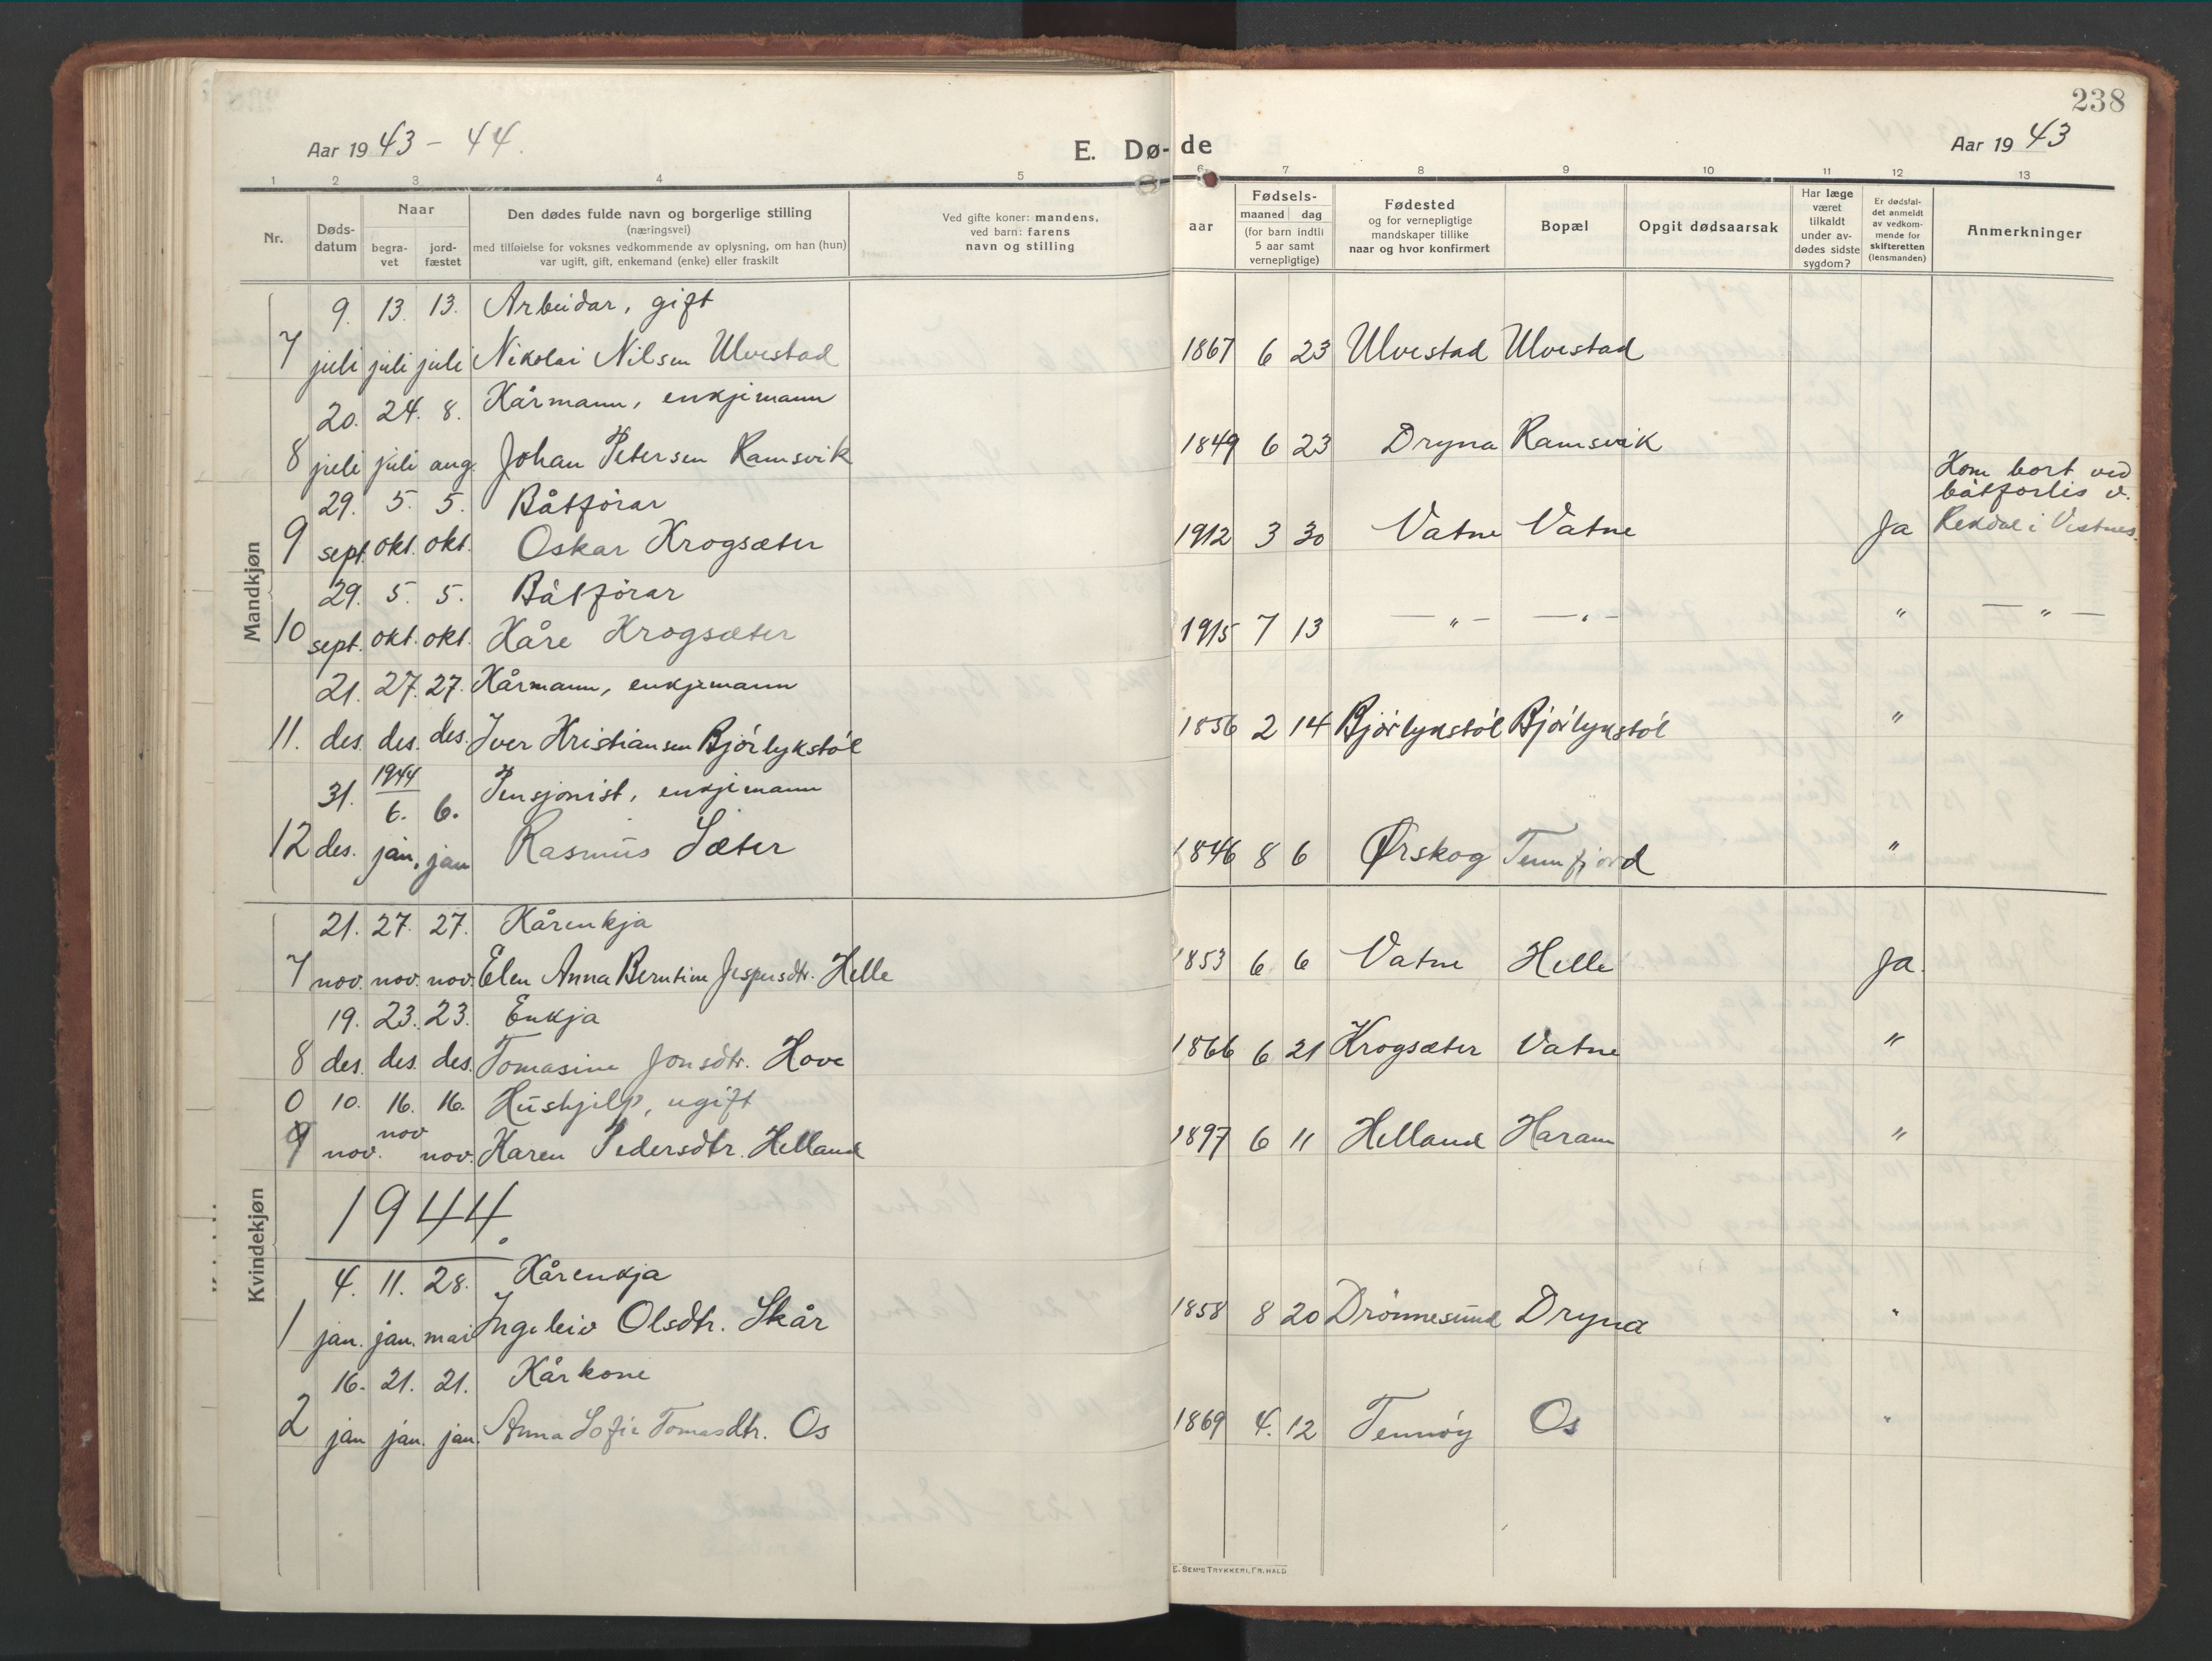 238
Aar 1943 - 44.
E. Dø-de
Aar 1943
1 2 3 4 5 6 7 8 9 10 11 12 13
Nr.
Døds-
datum
Naar
begra-
vet
jord-
fæstet
Den dødes fulde navn og borgerlige stilling
(næringsvei)
med tilføielse for voksnes vedkommende av oplysning, om han (hun)
var ugift, gift, enkemand (enke) eller fraskilt
Ved gifte koner: mandens,
ved barn: farens
navn og stilling
aar
Fødsels-
maaned dag
(for barn indtil
5 aar samt
vernepligtige)
Fødested
og for vernepligtige
mandskaper tillike
naar og hvor konfirmert
Bopæl
Opgit dødsaarsak
Har læge
været
tilkaldt
under av-
dødes sidste
sygdom?
Er dødsfal-
det anmeldt
av vedkom-
mende for
skifteretten
(lensmanden)
Anmerkninger
Mandkjøn
9. 13. 13. Arbeidar, gift
7 juli juli juli Nikolai Nilsen Ulvestad 1867 6 23 Ulvestad Ulvestad
20. 24. 8. Kårmann, enkjemann
8 juli juli aug. Johan Petersen Ramsvik 1849 6 23 Dryna Ramsvik
Kom bort ved
båtforlis v.
29. 5. 5. Båtförar
9 sept. okt. okt. Oskar Krogsæter 1912 3 30 Vatne Vatne Ja Rekdal i Vestnes.
29. 5. 5. Båtförar
10 sept. okt. okt. Kåre Krogsæter 1915 7 13 — " — — " — " — " —
21. 27. 27. Kårmann, enkjemann
11. des. des. des. Iver Kristiansen Bjørlykstøl 1856 2 14 Bjørlykstøl Bjørlykstøl "
1944
31. 6. 6. Pensjonist, enkjemann
12 des. jan. jan Rasmus Sæter 1846 8 6 Ørskog Tennfjord "
Kvindekjøn
21. 27. 27. Kårenkja
7 nov. nov. nov. Elen Anna Berntine Jespersdtr. Helle 1853 6 6 Vatne Helle Ja
19. 23. 23. Enkja
8 des. des. des. Tomasine Jonsdtr. Hove 1866 6 21 Krogsæter Vatne "
0 10. 16. 16. Hushjelp, ugift
9 nov. nov nov. Karen Pedersdtr. Helland 1897 6 11 Helland Haram "
1944.
4. 11. 28. Kårenkja
1 jan. jan. mai Ingeleiv Olsdtr. Skår 1858 8 20 Drönnesund Dryna "
16. 21. 21. Kårkone
2 jan jan. jan. Anna Sofie Tomasdtr. Os 1869 4. 12 Tennöy Os "
E. SEM'S TRYKKERI, FR.HALD